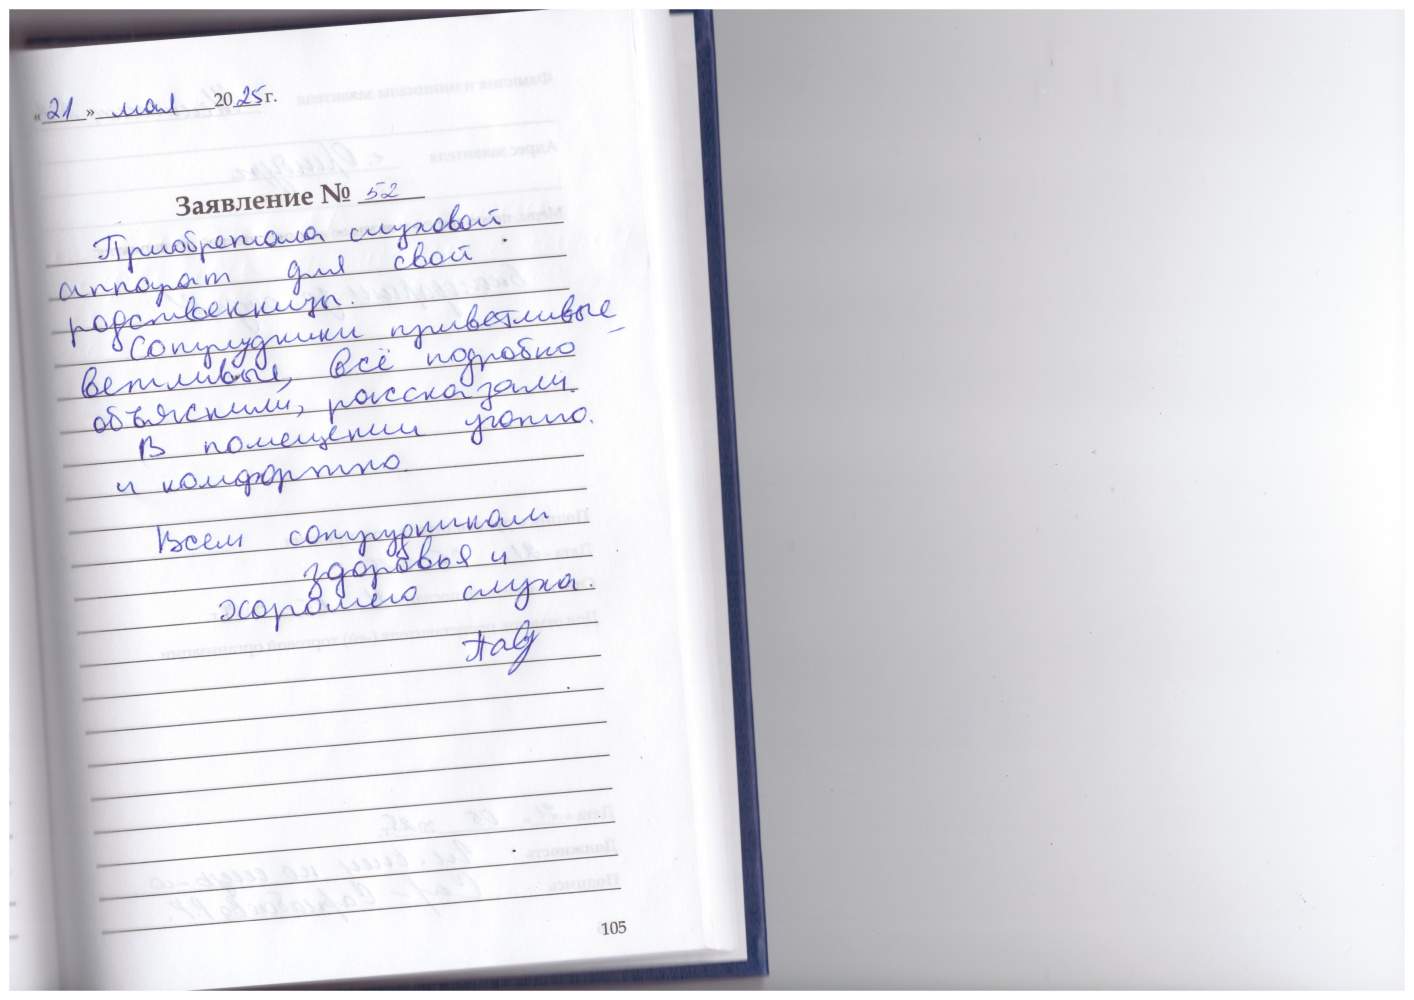 «21» мая 2025 г.
Заявление № 52
Приобретала слуховой
аппарат для свой
родственницы.
Сотрудники приветливые
ветливые, всё подробно
объяснили, рассказали.
В помещении уютно.
и комфортно.
Всем сотрудникам
здоровья и
хорошего слуха.
105